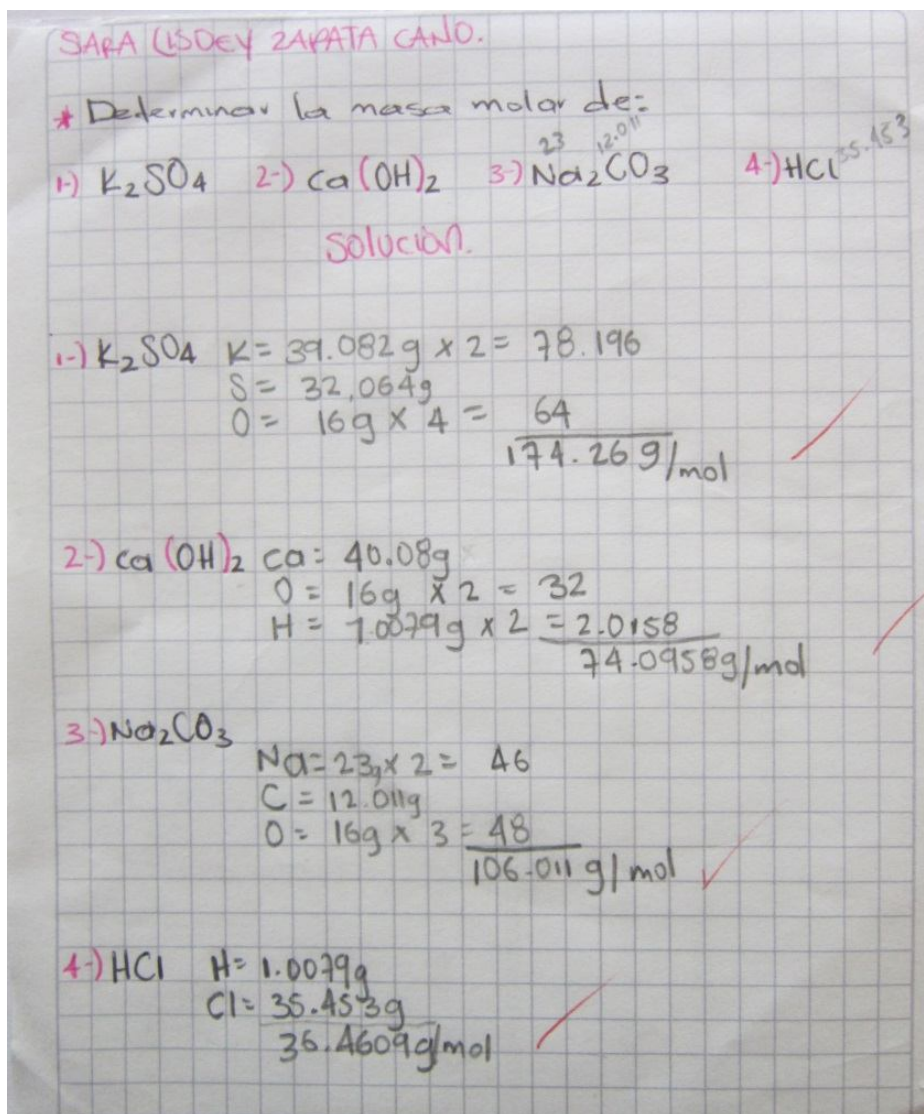 SARA LISDEY ZAPATA CANO.
* Determinar la masa molar de:
23 12.011 35.453
1-) K₂SO₄ 2-) Ca(OH)₂ 3-) Na₂CO₃ 4-) HCl
Solución.
1-) K₂SO₄ K= 39.082g x 2= 78.196
S= 32,064g
O= 16g x 4 = 64
174.26g/mol
2-) Ca(OH)₂ Ca= 40.08g
O= 16g x 2 = 32
H= 1.0079g x 2 = 2.0158
74.0958g/mol
3-) Na₂CO₃
Na=23g x 2= 46
C=12.011g
O= 16g x 3 = 48
106.011 g/mol
4-) HCl H= 1.0079g
Cl= 35.453g
36.4609g/mol